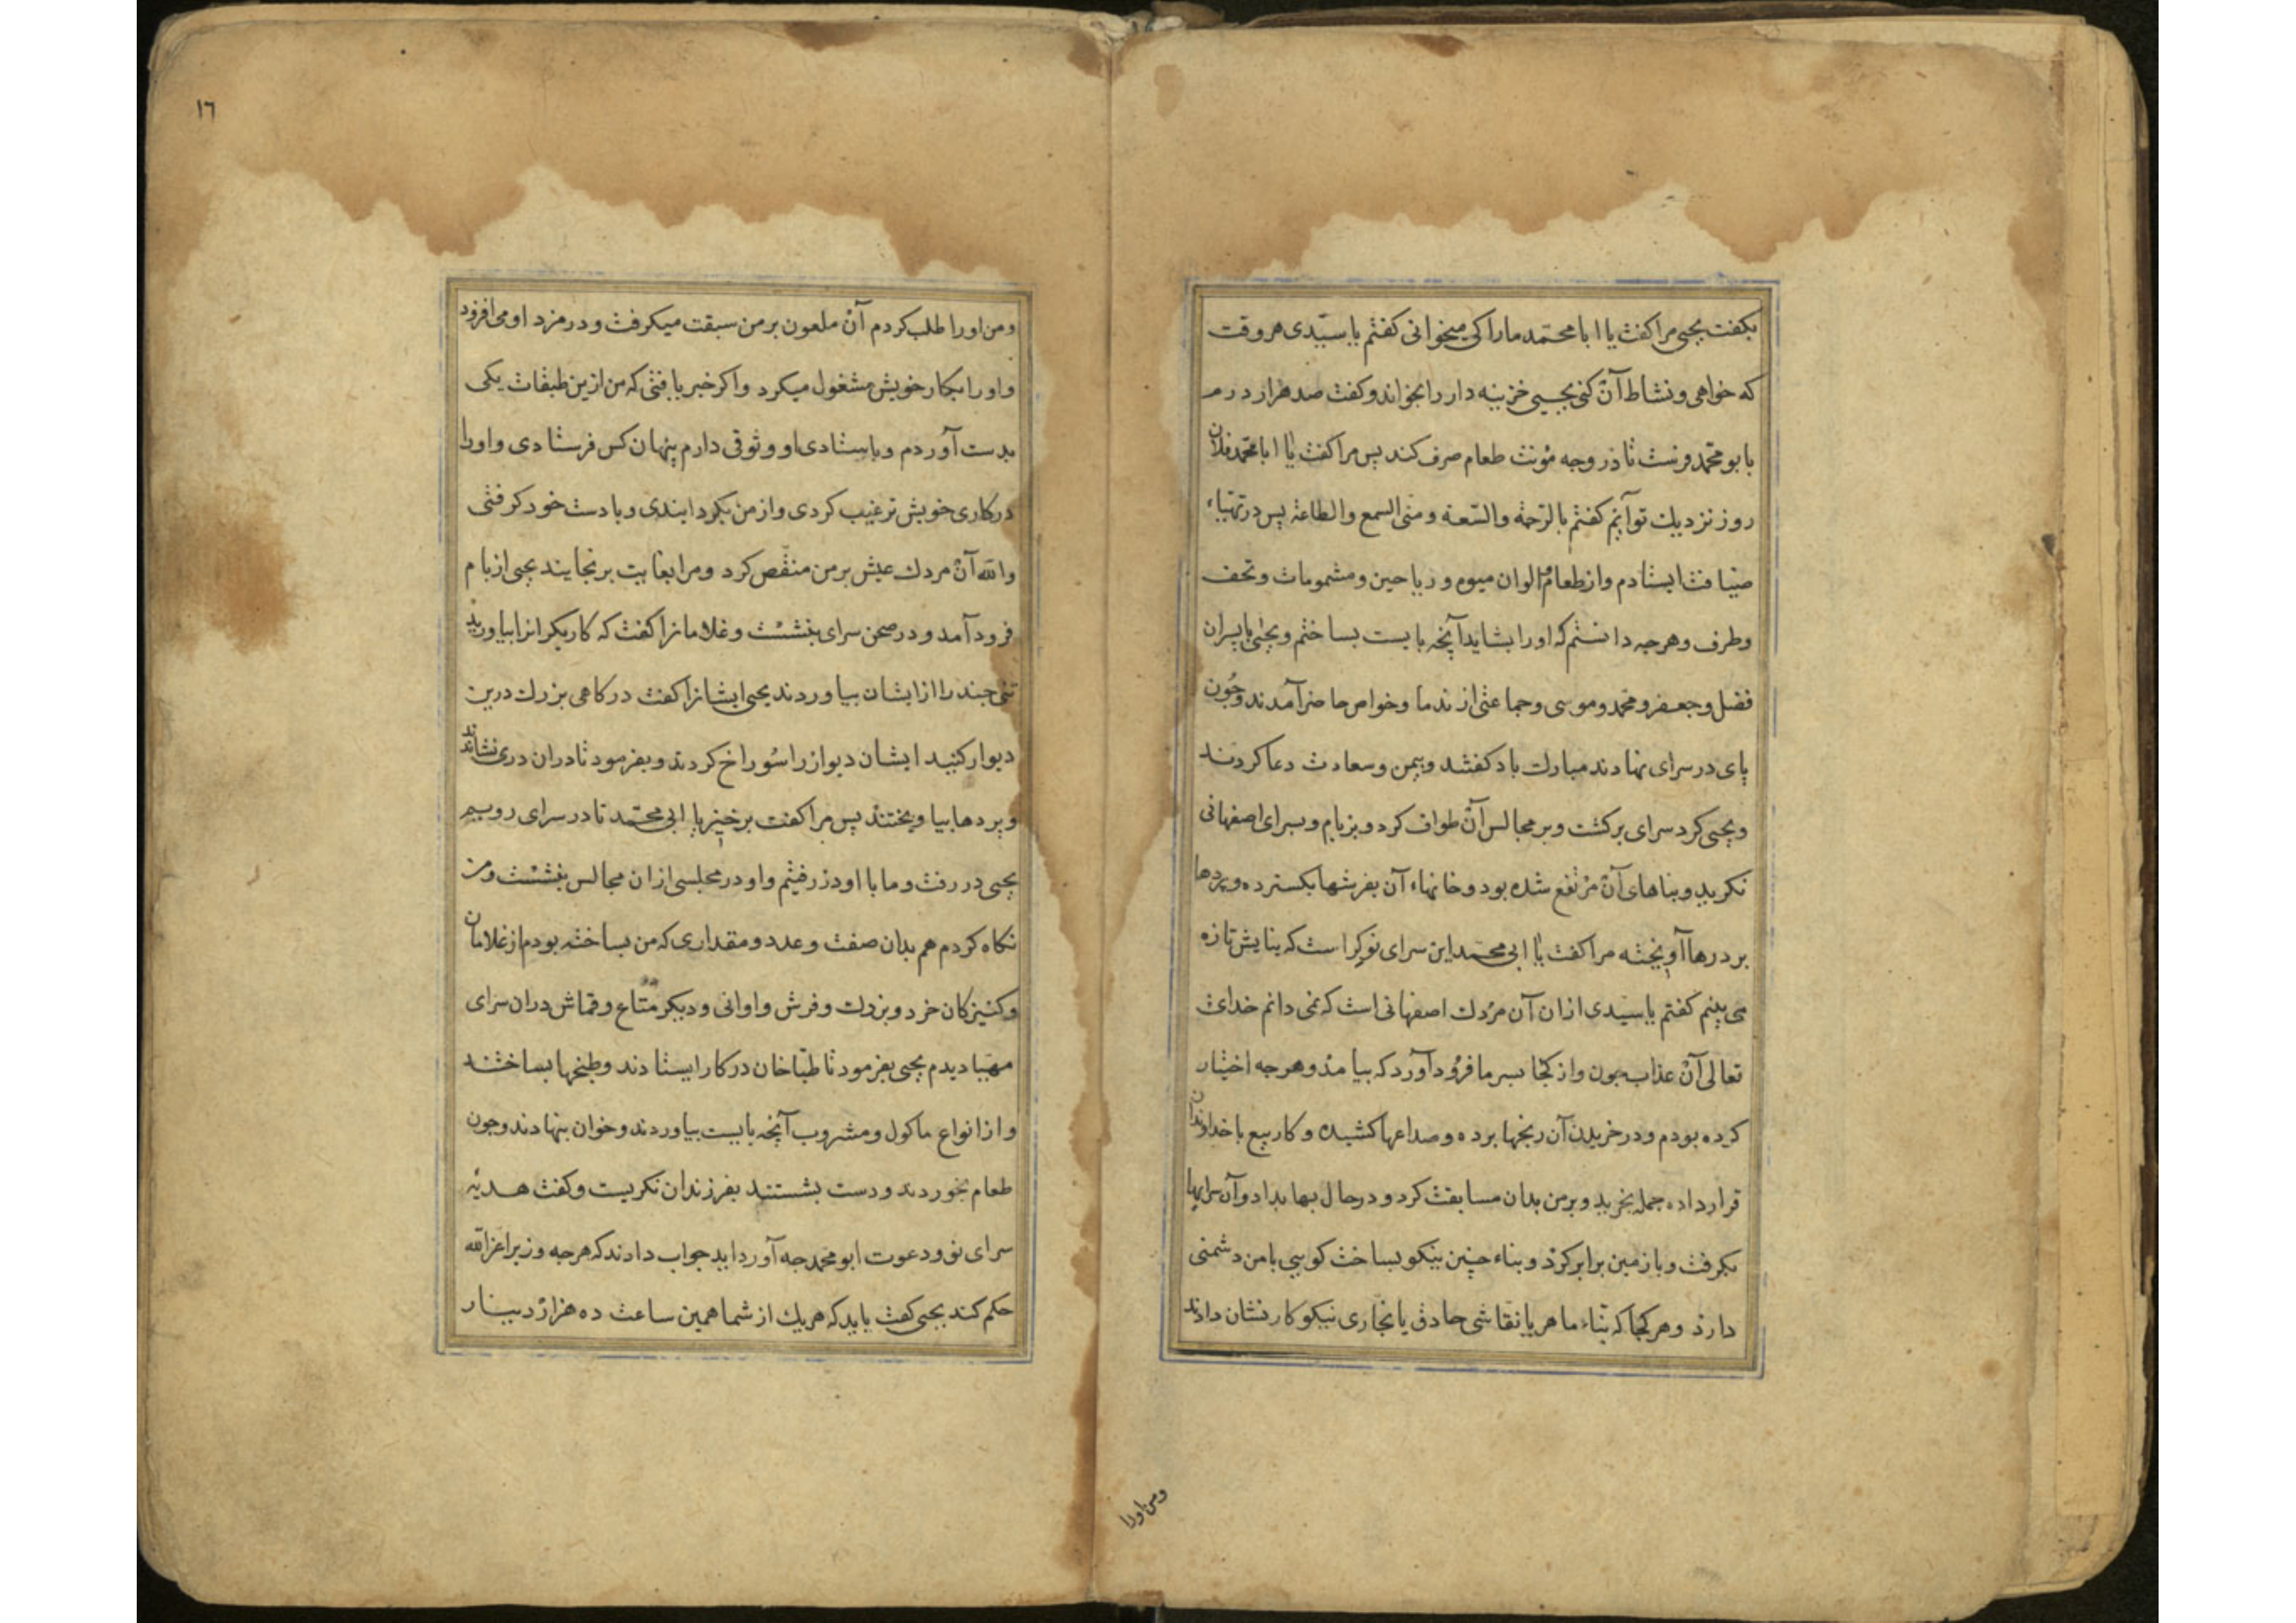 بكفت يحيى مرا كفت يا ابا محمد ما را كى ميخوانى كفتم يا سيّدى هر وقت
كه خواهى و نشاط آن كنى يحيى خزينه دار را بخواند و كفت صد هزار درم
بابو محمد فرست تا در وجه مؤنت طعام صرف كند پس مرا كفت يا ابا محمد فلان
روز نزديك تو آيم كفتم بالرّحمة والسّعة و منى السمع والطاعة پس در تهيّاء
ضيافت ايستادم و از طعام و الوان ميوه و رياحين و مشمومات و تحف
و طرف و هرجه دانستم كه او را بشايد آنچه بايست بساختم و يحيى با پسران
فضل و جعفر و محمد و موسى و جماعتى از ندما و خواص حاضر آمدند و چون
پاى در سراى نهادند مبارك باد كفتند و بيمن و سعادت دعا كردند
و يحيى كرد سراى بركشت و بر مجالس آن طواف كرد و بر بام و بسراى اصفهانى
نكريد و بناهاى آن مرتفع شده بود و خانهاء آن بفرشها بكسترده و پردها
بر درها آويخته مرا كفت يا ابى محمد اين سراى نو كراست كه بنايش تازه
مى بينم كفتم يا سيدى از ان آن مردك اصفهانى است كه نمى دانم خداى
تعالى آن عذاب چون و از كجا بسر ما فرود آورد كه بيامد و هرجه اختيار
كرده بودم و در خريدن آن رنجها برده و صداعها كشيده و كار بيع با خداوندان
قرار داده جمله بخريد و بر من بدان مسابقت كرد و در حال بها بداد و آن سرايها
بكرفت و با زمين برابر كرد و بناء چنين نيكو بساخت كويى با من دشمنى
دارد و هر كجا كه بنّاء ماهر يا نقاشى حاذق يا نجّارى نيكو كار نشان دادند
و من او را
١٦
و من او را طلب كردم آن ملعون بر من سبقت ميكرفت و در مزد او مى افزود
و او را بكار خويش مشغول ميكرد و اكر خبر يافتى كه من ازين طبقات يكى
بدست آوردم و باستادى او وثوقى دارم پنهان كس فرستادى و او را
در كارى خويش ترغيب كردى و از من بكردانيدى و با دست خود كرفتى
والله آن مردك عيش بر من منغّص كرد و مرا بغايت برنجانيد يحيى از بام
فرود آمد و در صحن سراى بنشست و غلامانرا كفت كه كاريكرانرا بياوريد
تنى چند را از ايشان بياوردند يحيى ايشانرا كفت دركاهى بزرك درين
ديوار كنيد ايشان ديوار را سوراخ كردند و بفرمود تا دران درى نشاندند
و پردها بياويختند پس مرا كفت برخيز يا ابى محمد تا در سراى رويم
يحيى در رفت و ما با او در رفتيم و او در مجلسى ازان مجالس بنشست و من
نكاه كردم هم بدان صفت و عدد و مقدارى كه من بساخته بودم از غلامان
و كنيزكان خرد و بزرك و فرش و اوانى و ديكر متاع و قماش دران سراى
مهيّا ديدم يحيى بفرمود تا طبّاخان در كار ايستادند و طبخها بساختند
و از انواع ماكول و مشروب آنچه بايست بياوردند و خوان بنهادند و چون
طعام بخوردند و دست بشستند بفرزندان نكريست و كفت هديّه
سراى نو و دعوت ابو محمد چه آورده ايد جواب دادند كه هرچه وزير اعزه الله
حكم كند يحيى كفت بايد كه هريك از شما همين ساعت ده هزار دينار